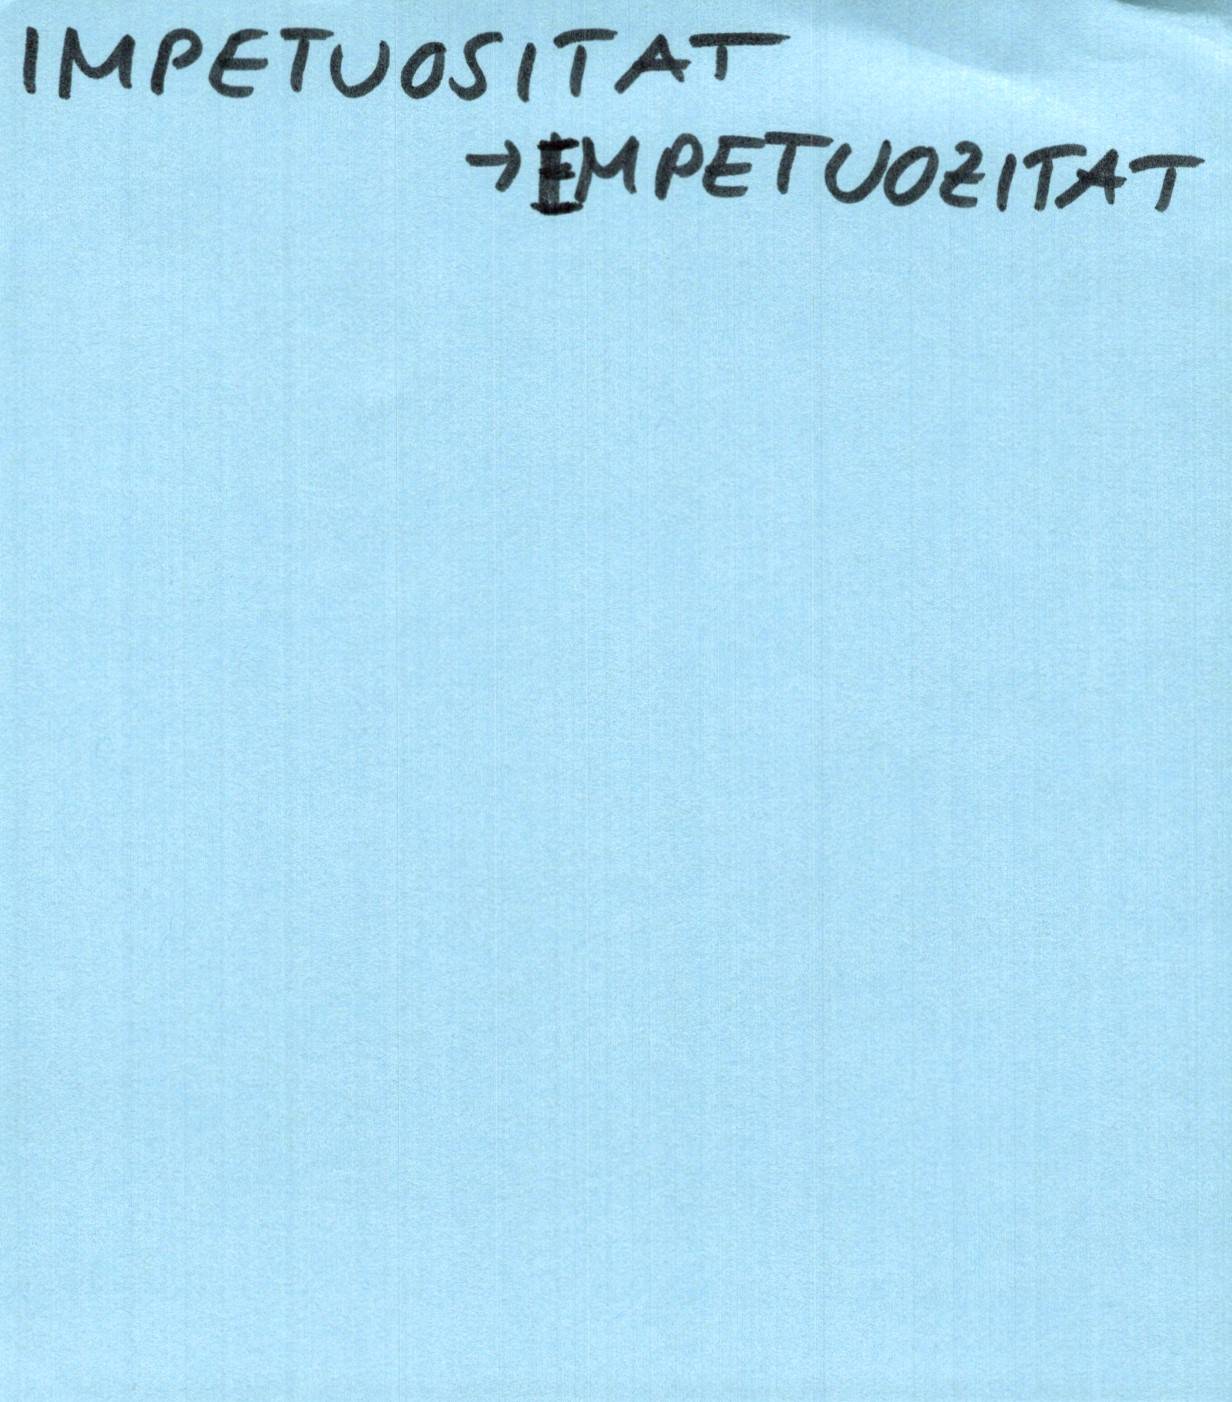 IMPETUOSITAT
→ IMPETUOZITAT